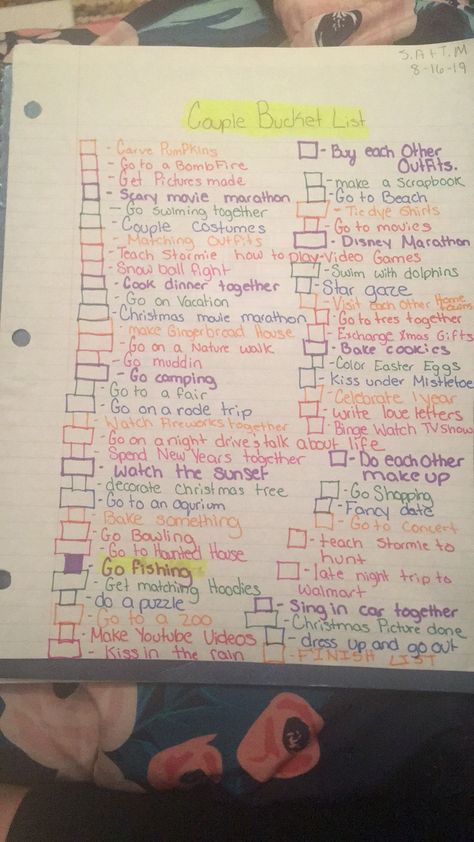 S.A+T.M
8-16-19
Couple Bucket List
- Carve Pumpkins
- Go to a BombFire
- Get Pictures made
- Scary movie marathon
- Go Swiming together
- Couple costumes
- Matching Outfits
- Teach Stormie how to play Video Games
- Snow ball fight
- Cook dinner together
- Go on Vacation
- Christmas movie marathon
- make Gingerbread House
- Go on a Nature walk
- Go muddin
- Go camping
- Go to a fair
- Go on a rode trip
- Watch Fireworks together
- Go on a night drive & talk about life
- Spend New Years together
- Watch the sunset
- decorate Christmas tree
- Go to an aqurium
- Bake something
- Go Bowling
- Go to Haunted House
- Go fishing
- Get matching Hoodies
- do a puzzle
- Go to a zoo
- Make Youtube Videos
- Kiss in the rain
- Buy each Other
Outfits.
- make a Scrapbook
- Go to Beach
- Tie dye Shirts
- Go to movies
- Disney Marathon
- Swim with dolphins
- Star gaze
- Visit each other Home towns
- Go to tres together
- Exchange Xmas Gifts
- Bake cookies
- Color Easter Eggs
- Kiss under Mistletoe
- Celebrate 1 year
- Write love letters
- Binge Watch TV Show
- Do each Other
make up
- Go Shopping
- Fancy date
- Go to Concert
- teach Stormie to
hunt
- late night trip to
Walmart
- Sing in car together
- Christmas Picture done
- dress up and go out
- FINISH LIST